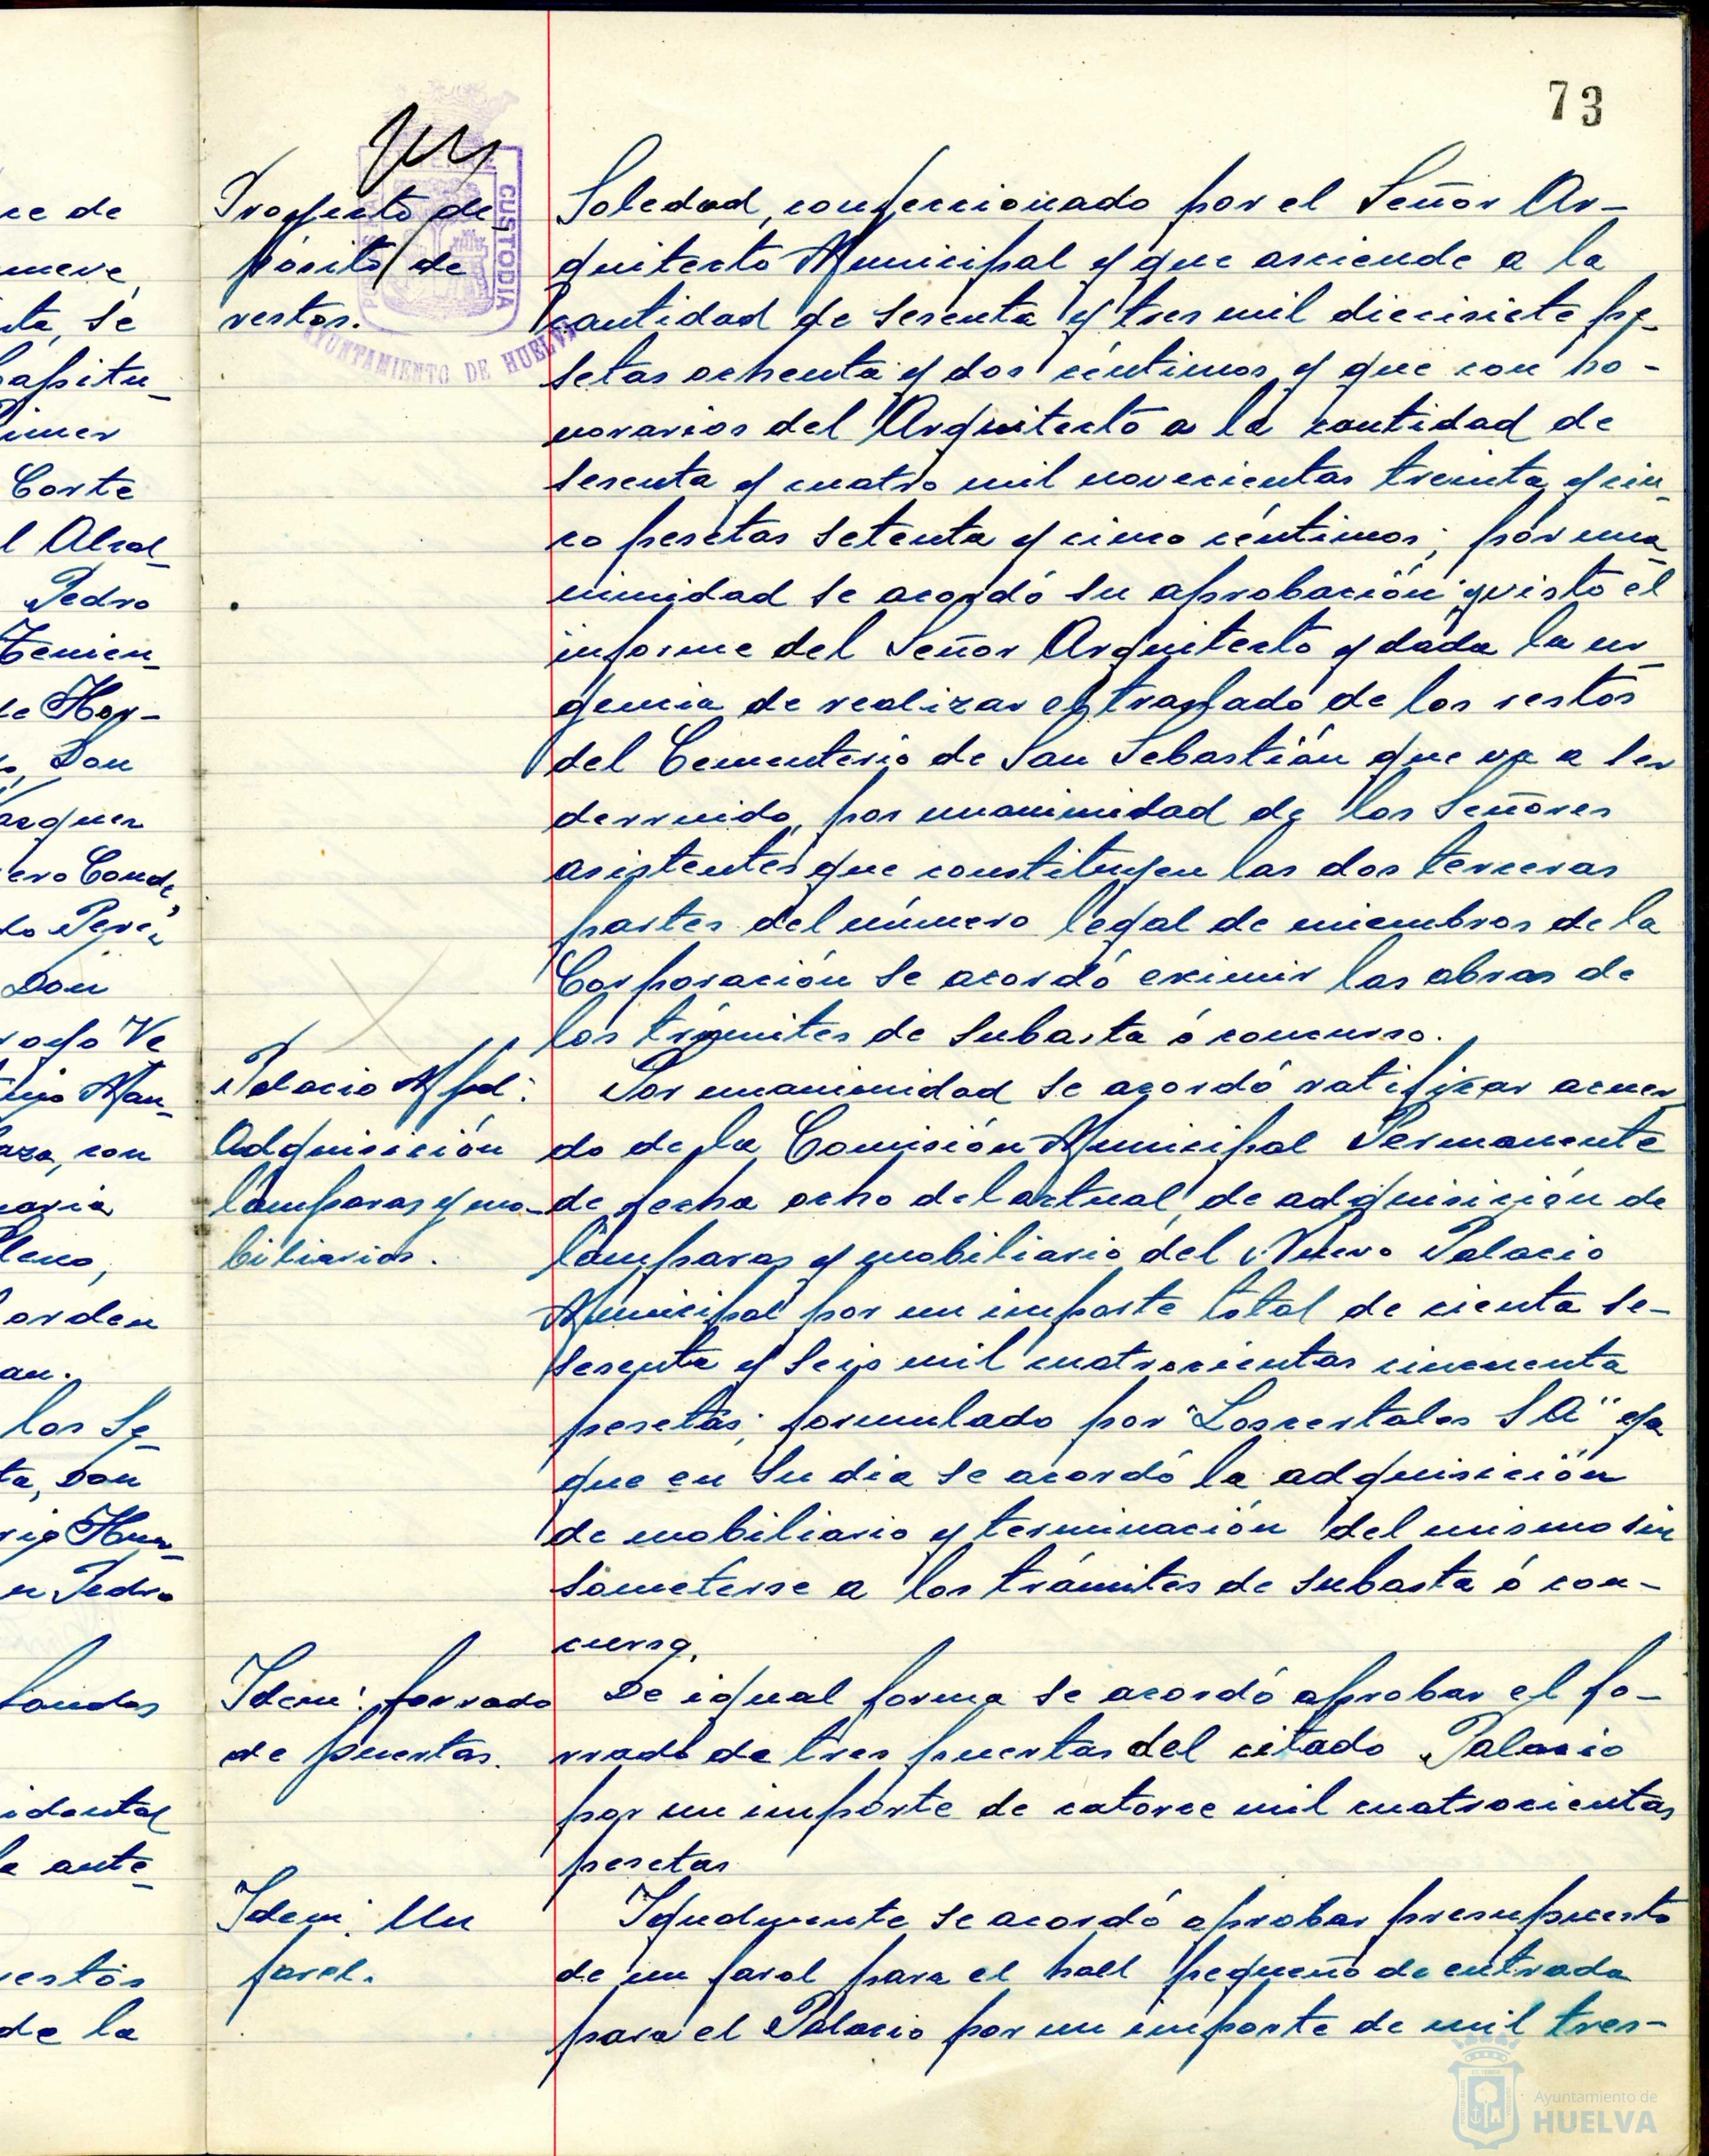 73
Proyecto de
pósito de
restos.
Soledad, confeccionado por el Señor Ar-
quitecto Municipal y que asciende a la
cantidad de sesenta y tres mil diecisiete pe-
setas ochenta y dos céntimos y que con ho-
norarios del Arquitecto a la cantidad de
sesenta y cuatro mil novecientas treinta y cin-
co pesetas setenta y cinco céntimos; por una-
nimidad se acordó su aprobación y visto el
informe del Señor Arquitecto y dada la ur-
gencia de realizar el traslado de los restos
del Cementerio de San Sebastián que va a ser
derruido, por unanimidad de los Señores
asistentes que constituyen las dos terceras
partes del número legal de miembros de la
Corporación se acordó eximir las obras de
los trámites de subasta ó concurso.
Palacio Mpal:
Adquisición
lámparas y mo-
biliarios.
Por unanimidad se acordó ratificar acuer-
do de la Comisión Municipal Permanente
de fecha ocho del actual, de adquisición de
lámparas y mobiliario del Nuevo Palacio
Municipal por un importe total de cienta se-
sesenta y seis mil cuatrocientas cincuenta
pesetas; formulado por "Loscertales S A" ya
que en su dia se acordó la adquisición
de mobiliario y terminación del mismo sin
someterse a los trámites de subasta ó con-
curso.
Idem: forrado
de puertas.
De igual forma se acordó aprobar el fo-
rrado de tres puertas del citado Palacio
por un importe de catorce mil cuatrocientas
pesetas
Idem: Un
farol.
Igualmente se acordó aprobar presupuesto
de un farol para el hall pequeño de entrada
para el Palacio por un importe de mil tres-
CUSTODIA
AYUNTAMIENTO DE HUELVA
ce de
nueve,
nta, se
Capitu-
rimer
Corte
l Alcal-
Pedro
Tenien-
de Hor-
Don
azquez
ero Conde,
do Pere-
Don
royo Ve
Man-
aza, con
naria
leno,
orden
an.
los Se-
ta, Don
rig Hur-
n Pedro
londos
idental
a ante-
restos
de la
Ayuntamiento de
HUELVA